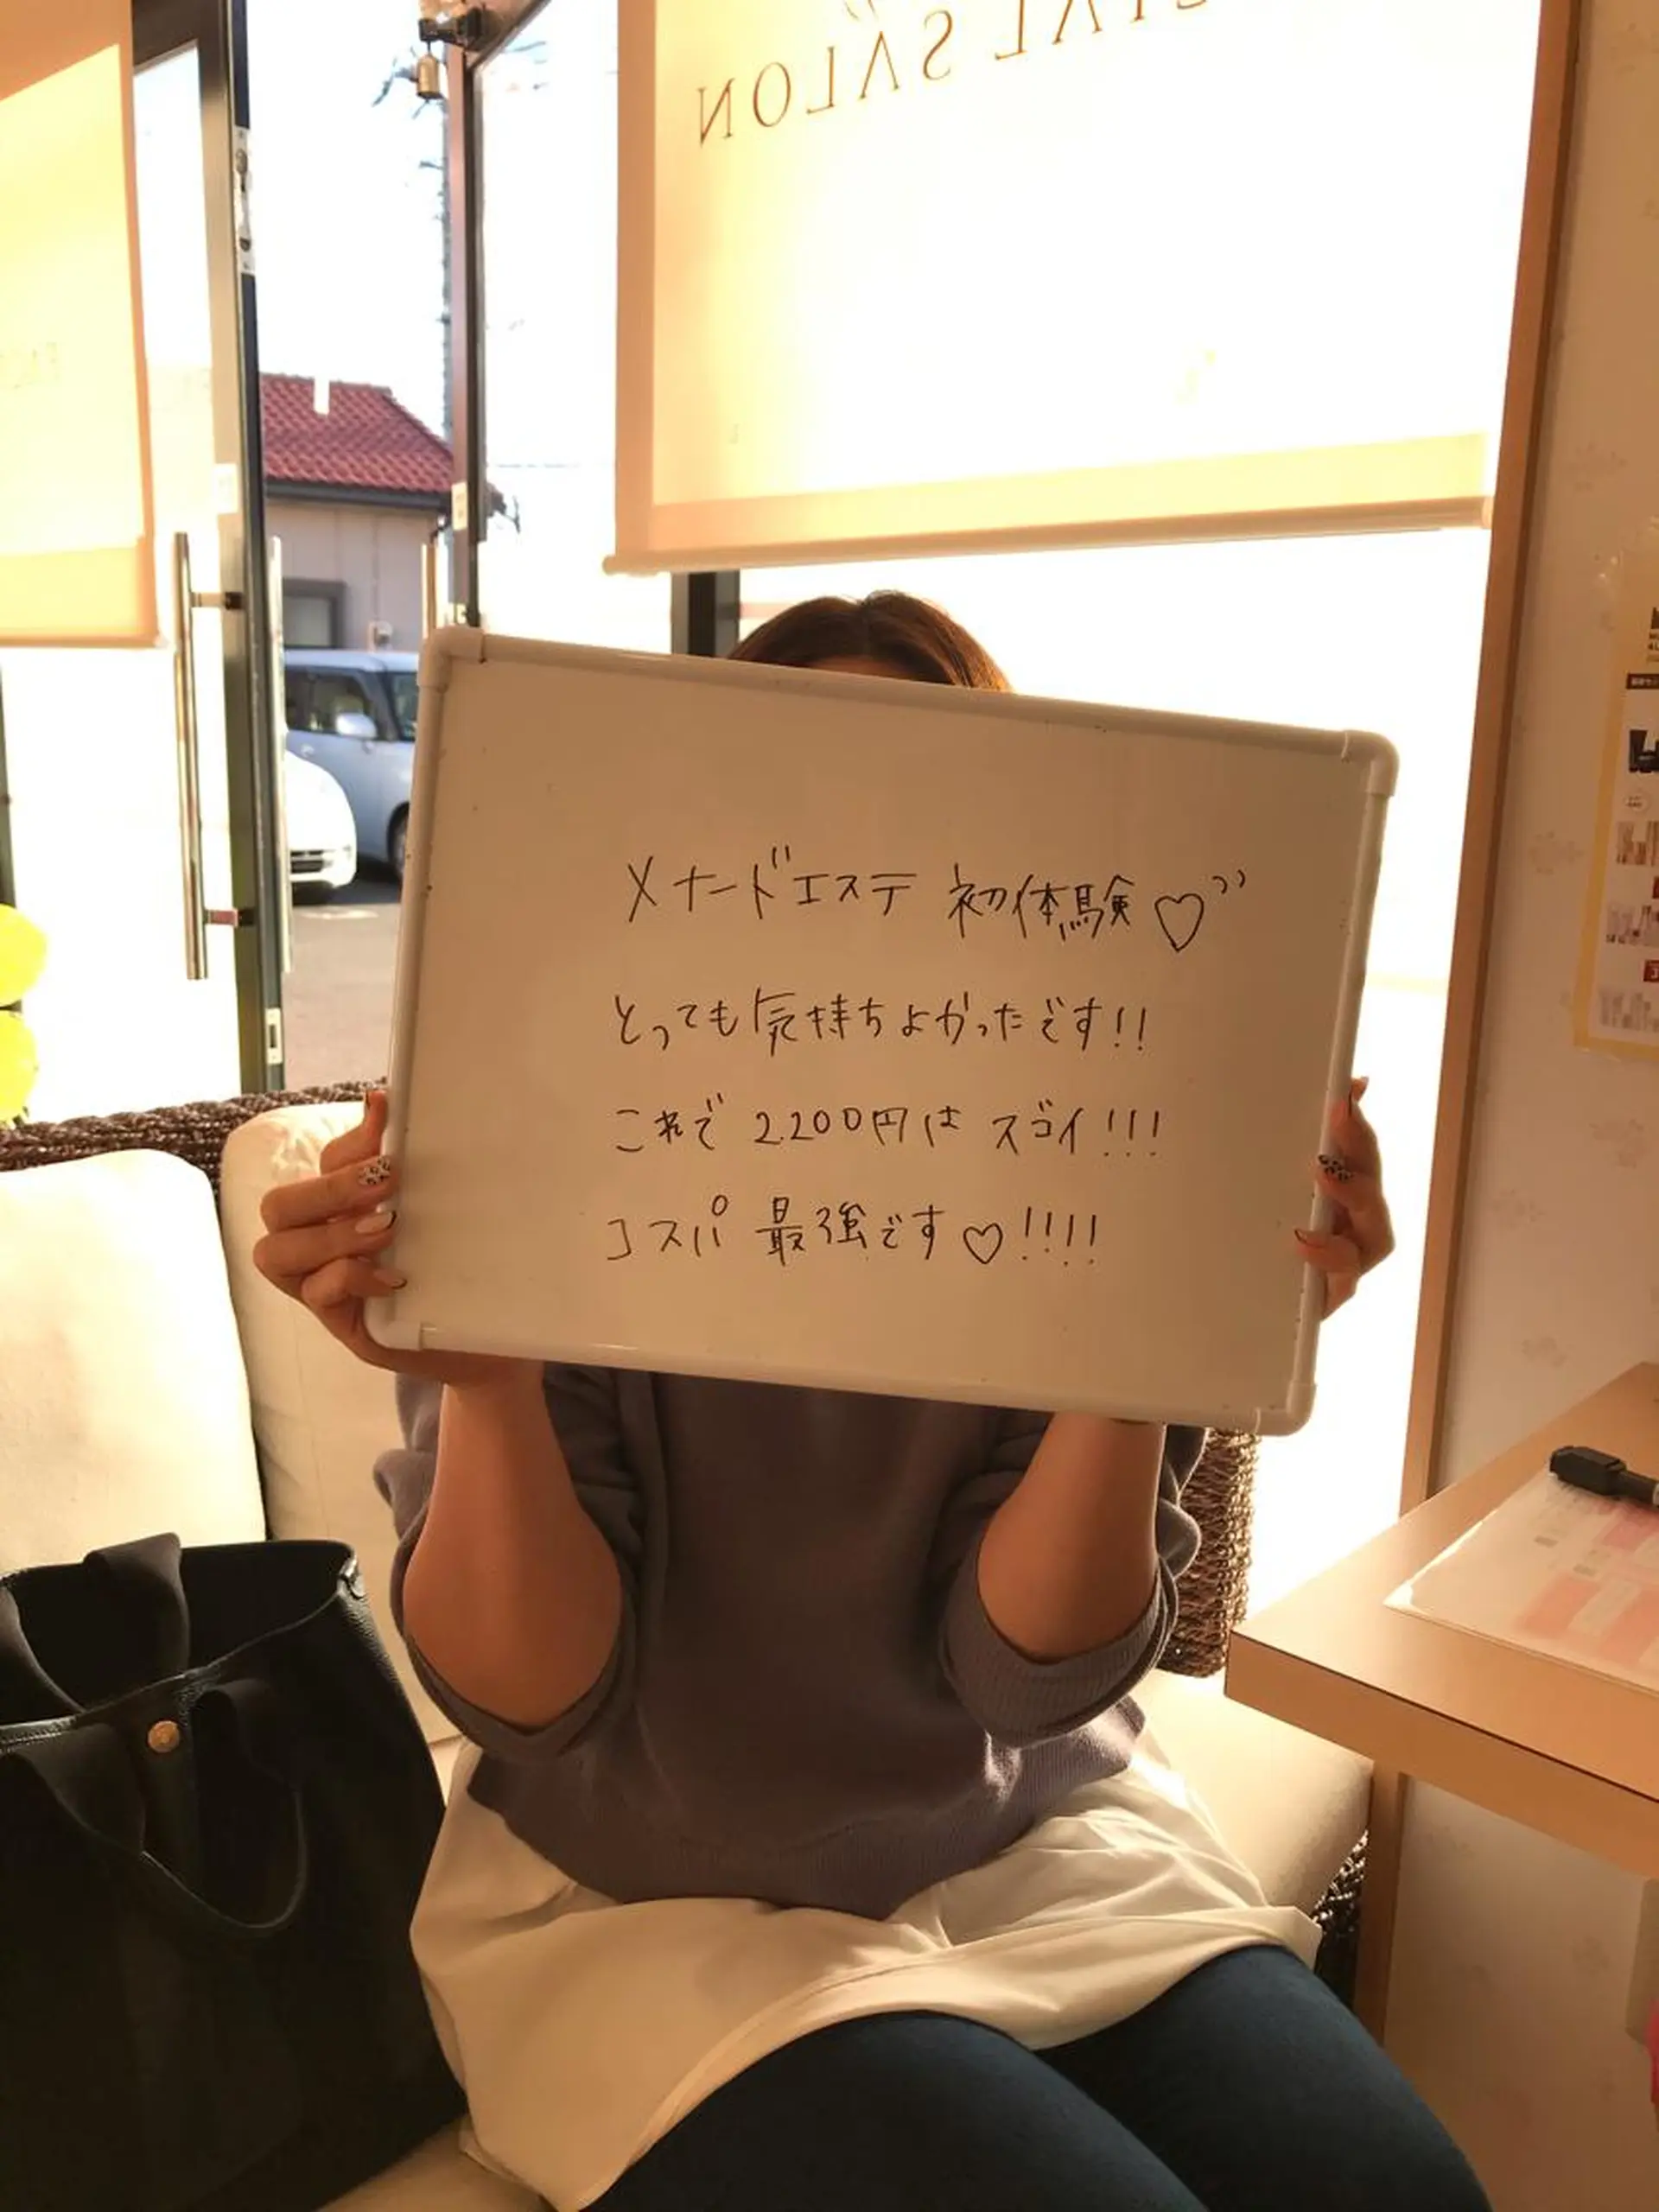 IAL SALON
メナードエステ 初体験♡〃
とっても気持ちよかったです!!
これで 2.200円は スゴイ!!!
コスパ 最強です♡!!!!